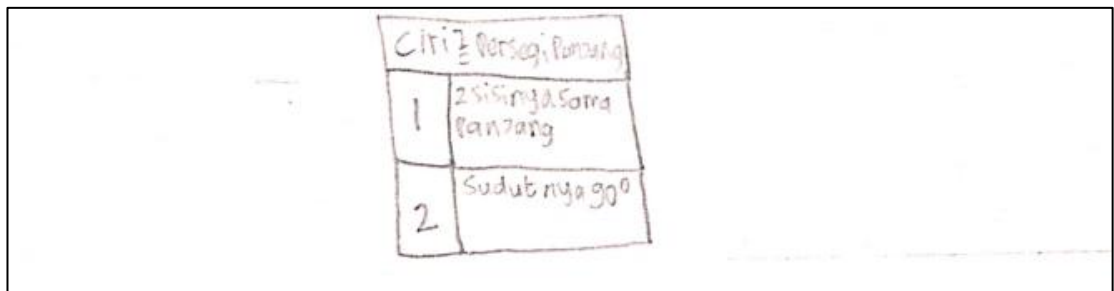 Ciri2 Persegi Panzang
1 2 sisinya sama
Panzang
2 Sudutnya 90⁰